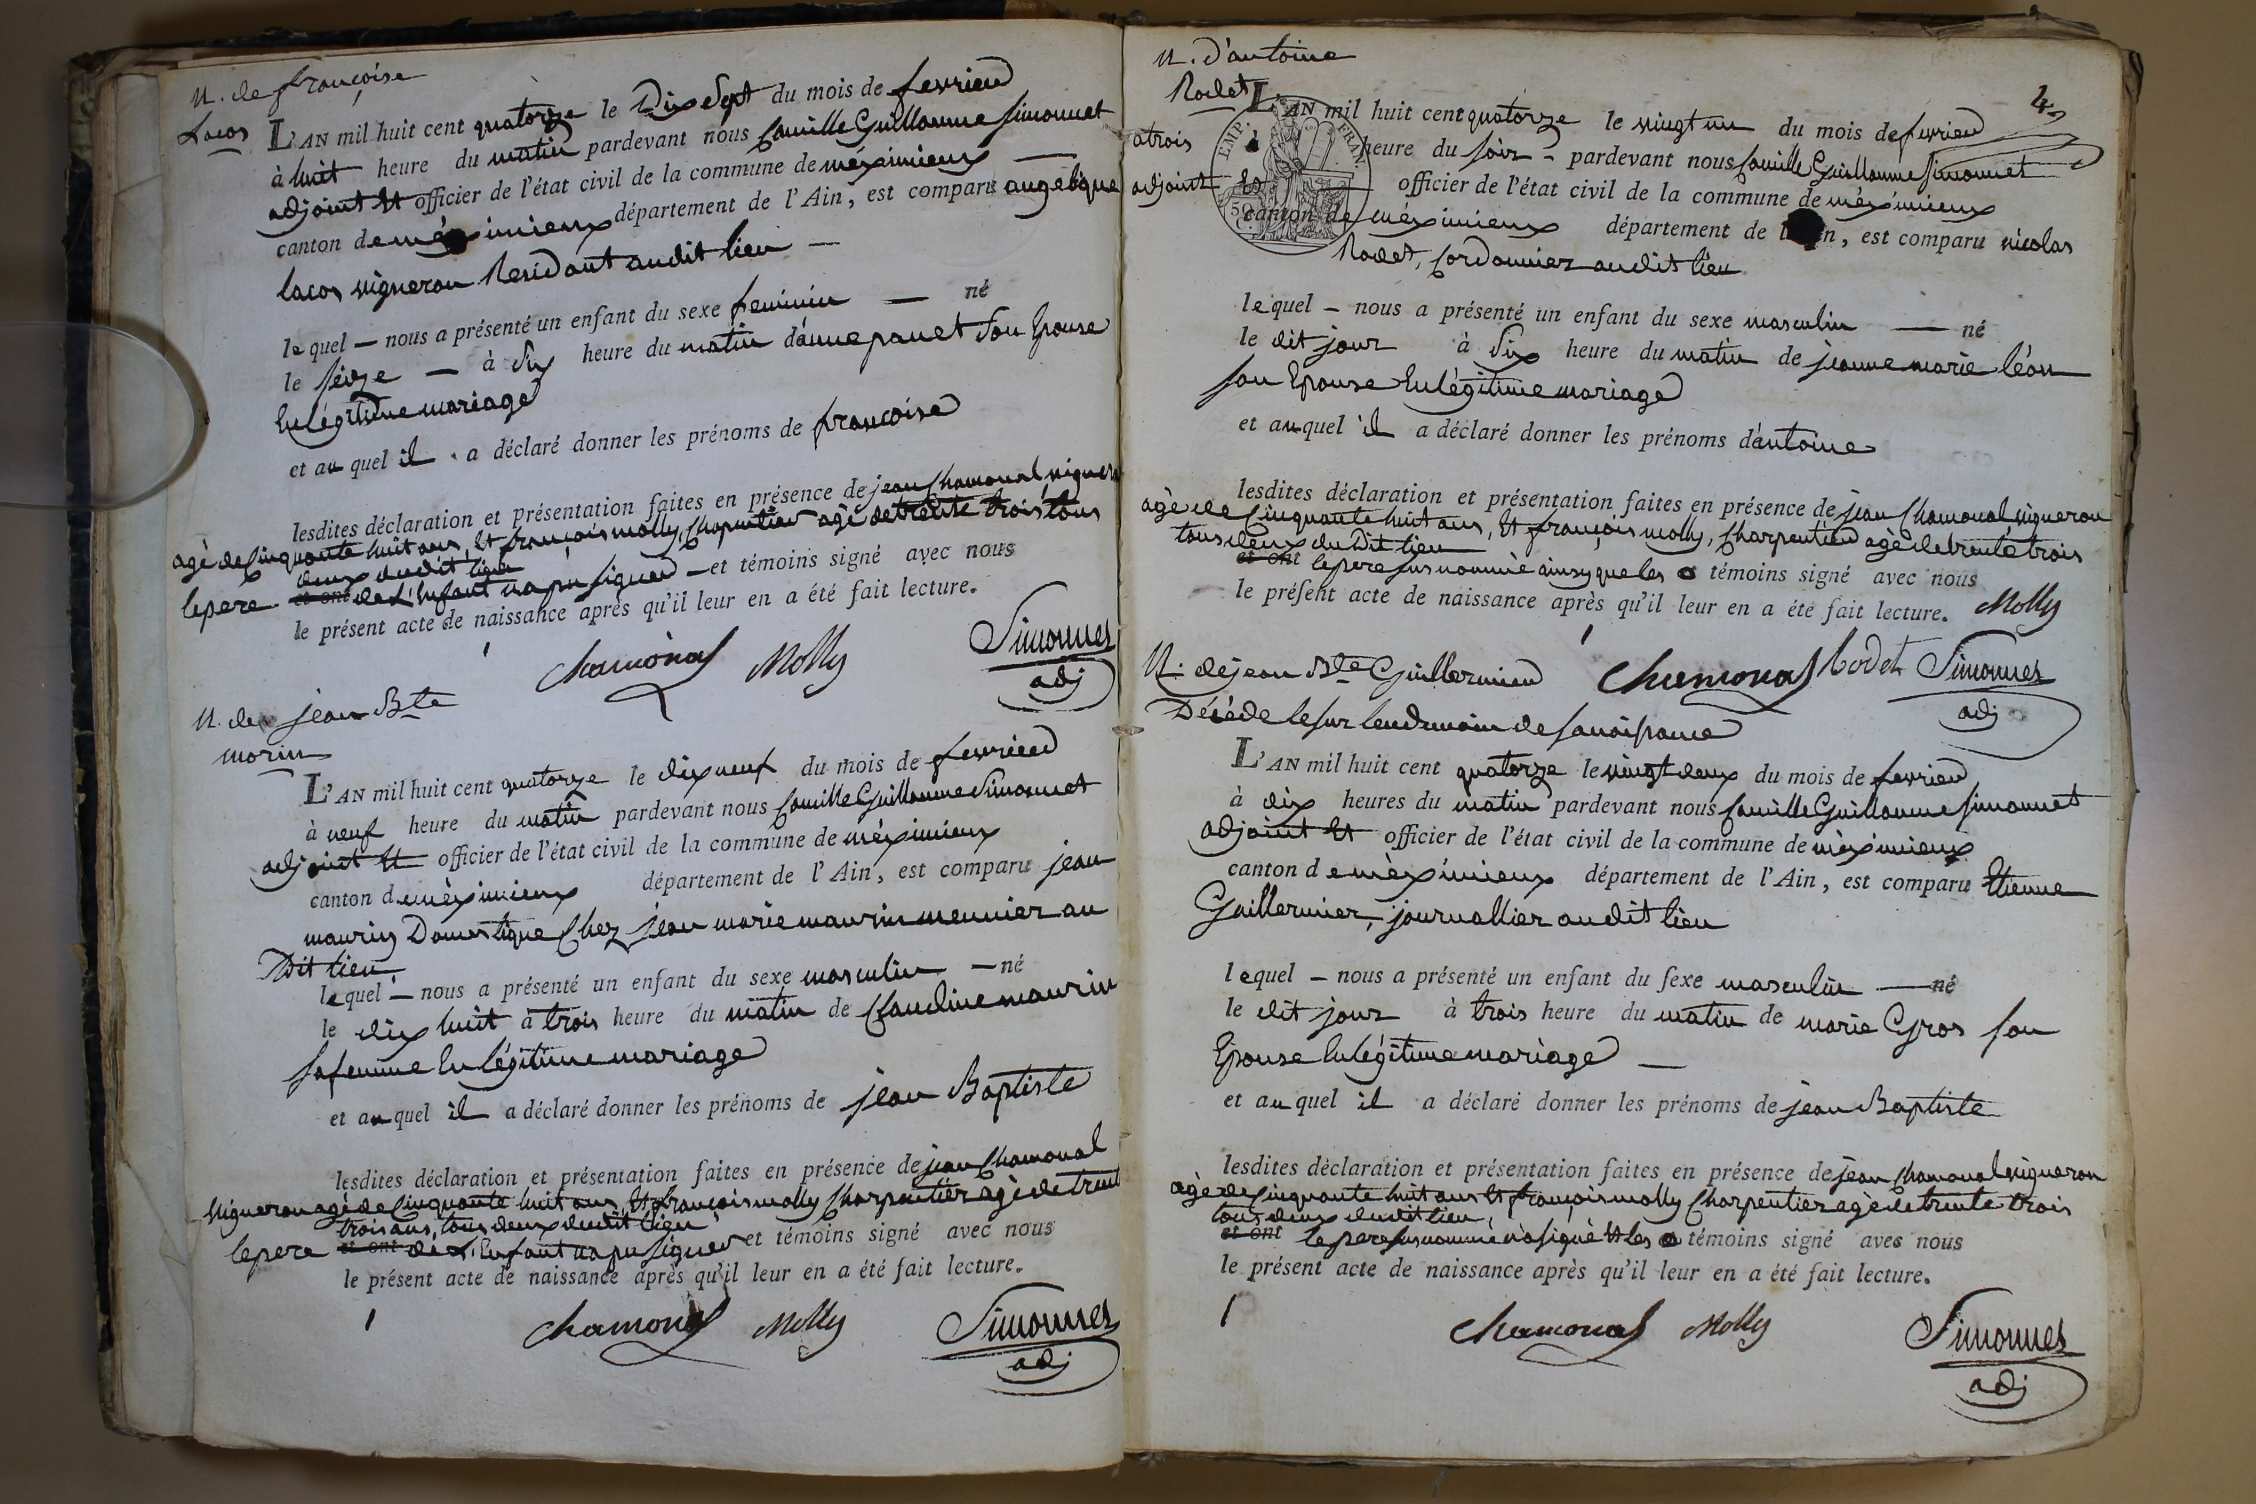 N. de françoise
Lacos
L'AN mil huit cent quatorze le Dix Sept du mois de fevrier
à huit heure du matin pardevant nous Camille Guillaume Simonnet
adjoint Et officier de l'état civil de la commune de méximieux
canton de méximieux département de l'Ain, est comparu angelique
lacos vigneron Residant audit lieu
lequel — nous a présenté un enfant du sexe feminin — né
le seize — à six heure du matin d'anne panet Son Epouse
En légitime mariage
et au quel il a déclaré donner les prénoms de françoise
lesdites déclaration et présentation faites en présence de jean Chamonal vigneron
agé de Cinquante huit ans, Et françois molly, Charpentier agé de trente trois tous
deux dudit lieu
le pere et ont de L'Enfant n'a pu signer — et témoins signé avec nous
le présent acte de naissance après qu'il leur en a été fait lecture.
Chamonal Molly Simonnet
adj
N. de jean Bte
morin
L'AN mil huit cent quatorze le dix neuf du mois de fevrier
à neuf heure du matin pardevant nous Camille Guillaume Simonnet
adjoint Et officier de l'état civil de la commune de méximieux
canton de méximieux département de l'Ain, est comparu jean
maurin Domestique Chez jean marie maurin meunier au
Dit lieu
lequel — nous a présenté un enfant du sexe masculin — né
le dix huit à trois heure du matin de Claudine maurin
sa femme En légitime mariage
et au quel il a déclaré donner les prénoms de jean Baptiste
lesdites déclaration et présentation faites en présence de jean Chamonal
vigneron agé de Cinquante huit ans, Et françois molly Charpentier agé de trente
trois ans, tous deux dudit lieu
le pere et ont de L'Enfant n'a pu signer et témoins signé avec nous
le présent acte de naissance après qu'il leur en a été fait lecture.
Chamonal Molly Simonnet
adj
N. d'antoine
Rodet
4
L'AN mil huit cent quatorze le vingt un du mois de fevrier
a trois heure du soir - pardevant nous Camille Guillaume Simonnet
adjoint Et officier de l'état civil de la commune de méximieux
canton de méximieux département de l'Ain, est comparu nicolas
Rodet, Cordonnier audit lieu
EMP. FRAN.
lequel — nous a présenté un enfant du sexe masculin — né
le dit jour à Six heure du matin de jeanne marie léon
son Epouse En légitime mariage
et au quel il a déclaré donner les prénoms d'antoine
lesdites déclaration et présentation faites en présence de jean Chamonal vigneron
agé de Cinquante huit ans, Et françois molly, Charpentier agé de trente trois
tous deux du Dit lieu
et ont le pere sus nommé ainsy que les témoins signé avec nous
le présent acte de naissance après qu'il leur en a été fait lecture. Molly
Chamonal Rodet Simonnet
adj
N. de jean Bte Guillermier
Décédé le sur lendemain de sa naissance
L'AN mil huit cent quatorze le vingt deux du mois de fevrier
à dix heures du matin pardevant nous Camille Guillaume Simonnet
adjoint Et officier de l'état civil de la commune de méximieux
canton de méximieux département de l'Ain, est comparu Etienne
Guillermier, journallier audit lieu
lequel — nous a présenté un enfant du sexe masculin — né
le dit jour à trois heure du matin de marie Gros son
Epouse En légitime mariage —
et au quel il a déclaré donner les prénoms de jean Baptiste
lesdites déclaration et présentation faites en présence de jean Chamonal vigneron
agé de Cinquante huit ans Et françois molly Charpentier agé de trente trois
tous deux dudit lieu,
et ont le pere sus nommé n'a signé Et les témoins signé avec nous
le présent acte de naissance après qu'il leur en a été fait lecture.
Chamonal Molly Simonnet
adj